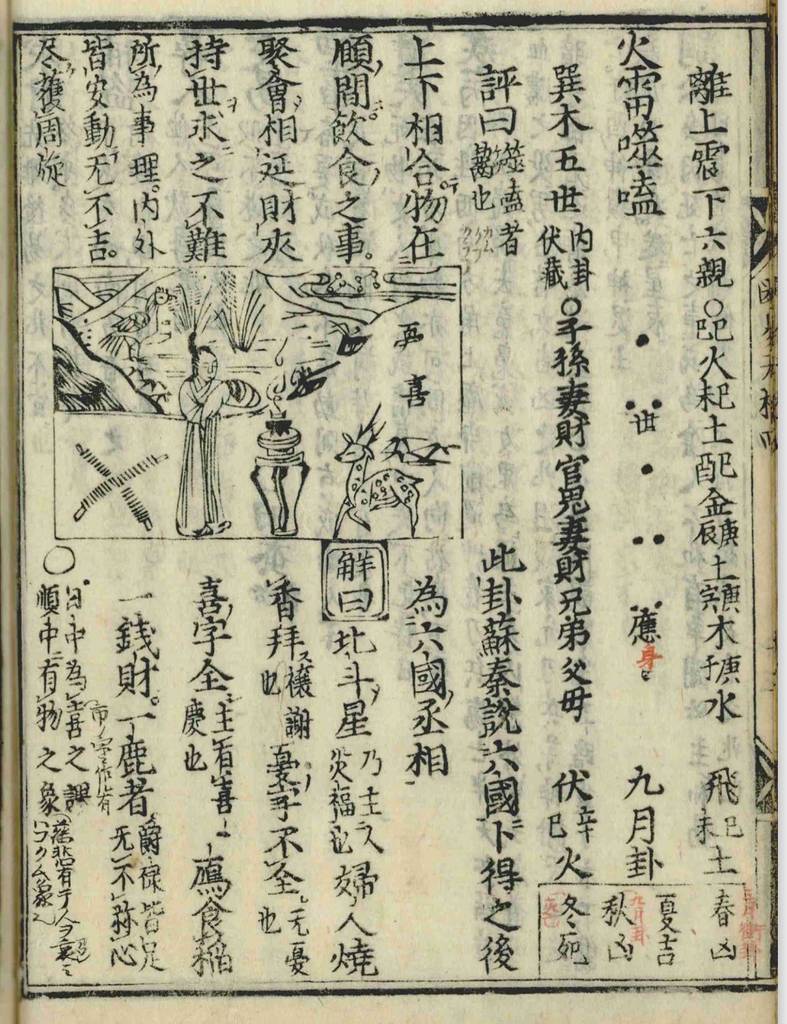 離上震下六親○己巳火己未土己酉金庚辰土庚寅木庚子水　飛己未土
火雷噬嗑　世　應身　九月卦
巽木五世内卦伏藏○子孫妻財官鬼妻財兄弟父母　伏辛巳火
春凶
夏吉
秋凶
冬死
評曰噬嗑者齧也
此卦蘇秦說六國卜得之後
上下相合物在
為六國丞相
頤間飲食之事
解曰北斗星乃主人災福也婦人燒
聚會相延財夾
香拜禳謝也憂字不全无憂也
持世求之不難
喜字全主有喜慶也鴈食稻
所為事理内外
一錢財一鹿者爵祿皆足无不称心
皆安動无不吉
尽獲周旋
○日中為
順中有物之象
喜